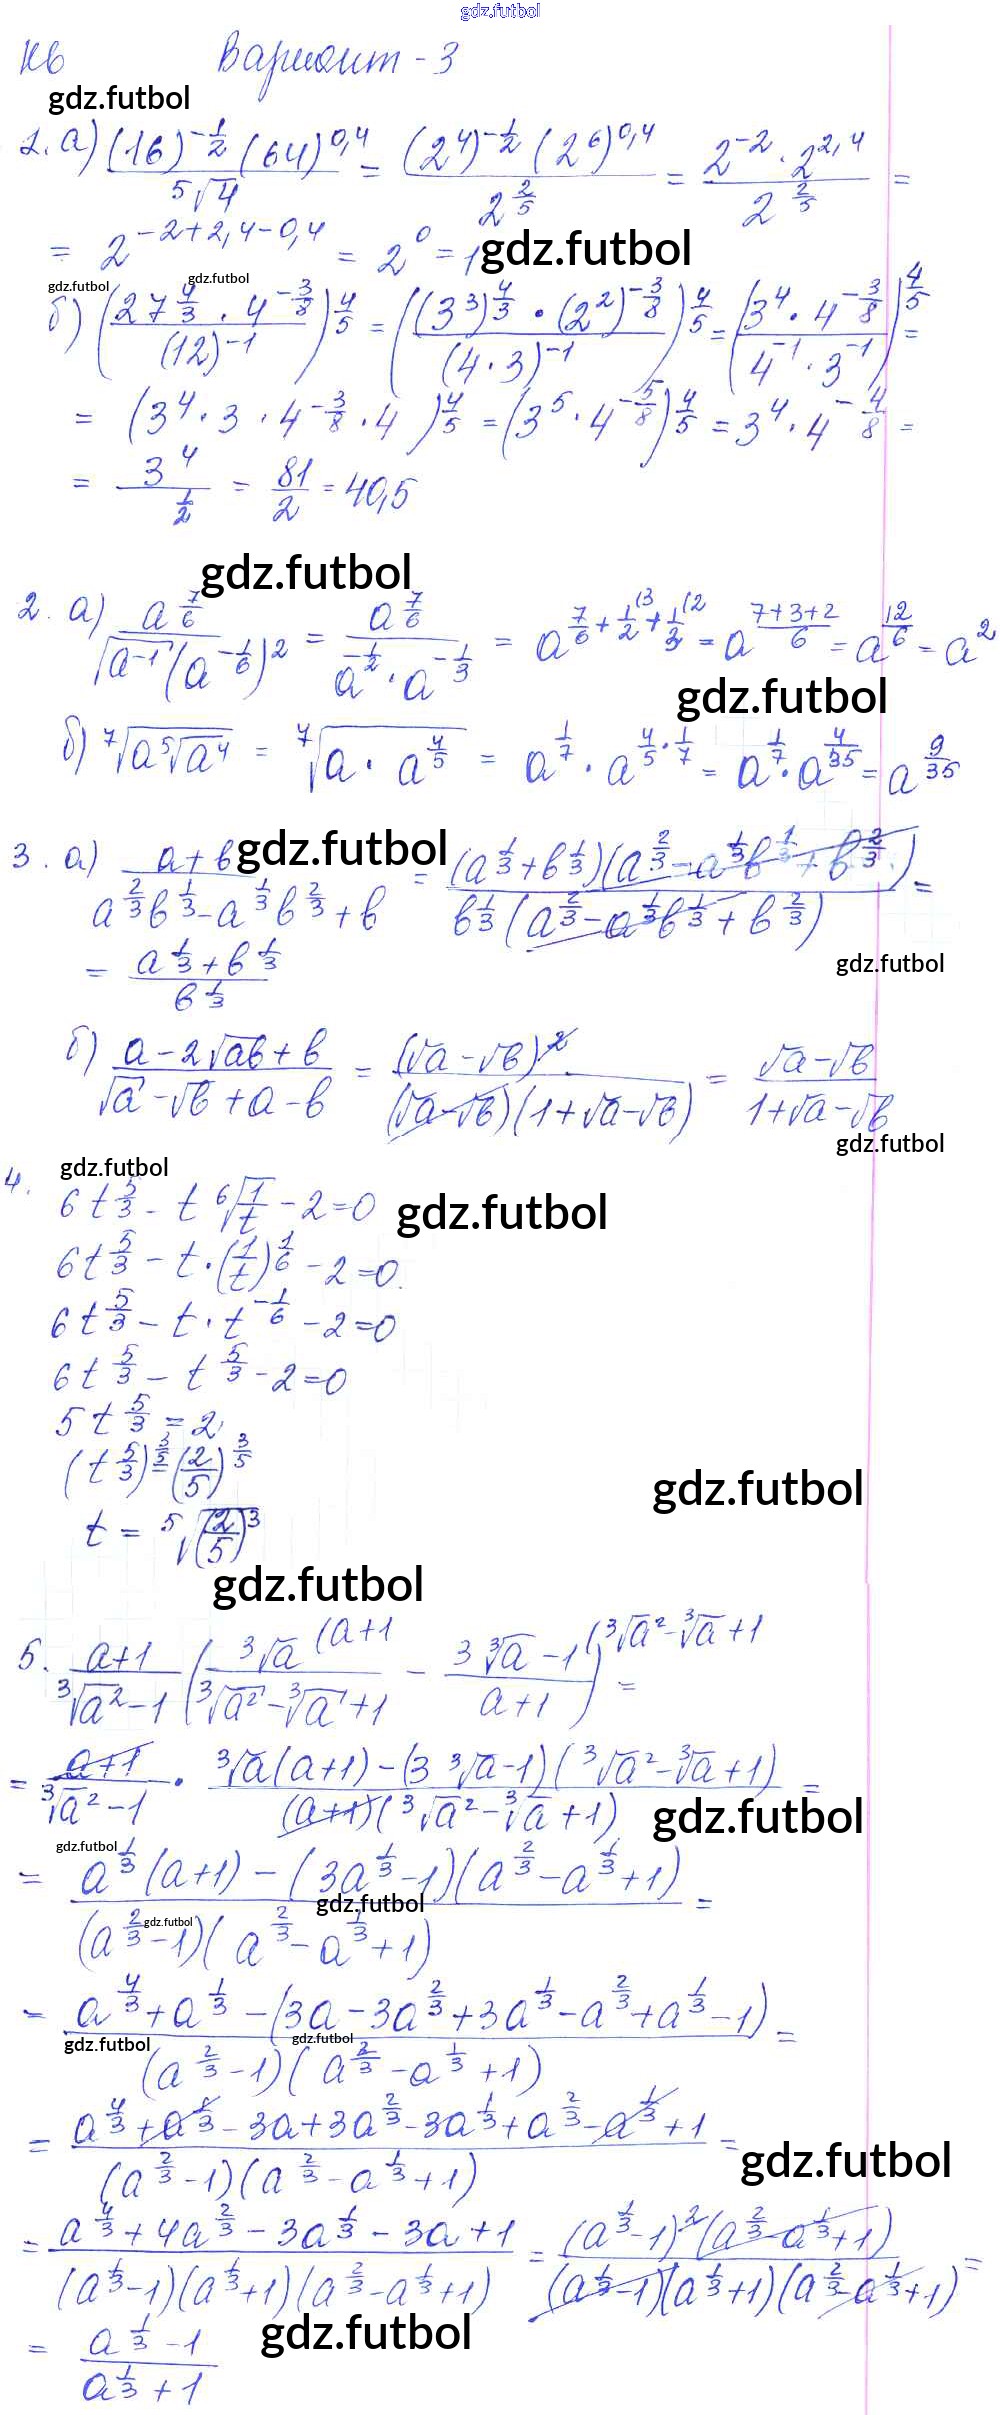 gdz.futbol
К6 Вариант - 3
gdz.futbol
1. а) ((16)^(-1/2) (64)^(0,4))/(5√4) = ((2^4)^(-1/2) (2^6)^(0,4))/(2^(2/5)) = (2^(-2) · 2^(2,4))/(2^(2/5)) =
= 2^(-2+2,4-0,4) = 2^0 = 1 gdz.futbol
gdz.futbol gdz.futbol
б) ((27^(4/3) · 4^(-3/8))/((12)^(-1)))^(4/5) = (((3^3)^(4/3) · (2^2)^(-3/8))/((4 · 3)^(-1)))^(4/5) = ((3^4 · 4^(-3/8))/(4^(-1) · 3^(-1)))^(4/5) =
= (3^4 · 3 · 4^(-3/8) · 4)^(4/5) = (3^5 · 4^(-5/8))^(4/5) = 3^4 · 4^(-4/8) =
= 3^4/(1/2) = 81/2 = 40,5
gdz.futbol
2. а) a^(7/6)/(√(a^(-1)) (a^(-1/6))^2) = a^(7/6)/(a^(-1/2) · a^(-1/3)) = a^(7/6 + 1/2 (3 + 1/3 (2) = a^((7+3+2)/6) = a^(12/6) = a^2
gdz.futbol
б) ⁷√(a ⁵√(a^4)) = ⁷√(a · a^(4/5)) = a^(1/7) · a^(4/5 · 1/7) = a^(1/7) · a^(4/35) = a^(9/35)
3. а) (a+b)/(a^(2/3)b^(1/3) - a^(1/3)b^(2/3) + b) gdz.futbol = ((a^(1/3)+b^(1/3))(a^(2/3) - a^(1/3)b^(1/3) + b^(2/3)))/(b^(1/3)(a^(2/3) - a^(1/3)b^(1/3) + b^(2/3))) =
= (a^(1/3)+b^(1/3))/(b^(1/3))
gdz.futbol
б) (a - 2√ab + b)/(√a - √b + a - b) = ((√a - √b)^2)/((√a-√b)(1+√a-√b)) = (√a-√b)/(1+√a-√b)
gdz.futbol
4. gdz.futbol
6t^(5/3) - t ⁶√(1/t) - 2=0 gdz.futbol
6t^(5/3) - t · (1/t)^(1/6) - 2=0.
6t^(5/3) - t · t^(-1/6) - 2=0
6t^(5/3) - t^(5/3) - 2=0
5t^(5/3) = 2
(t^(5/3))^(3/5) = (2/5)^(3/5)
gdz.futbol
t = ⁵√((2/5)^3)
gdz.futbol
5. (a+1)/(³√a² - 1) (³√a (a+1/(³√a² - ³√a + 1) - (3 ³√a - 1 (³√a² - ³√a + 1)/(a+1)) =
= (a+1)/(³√a² - 1) · (³√a(a+1) - (3 ³√a - 1)(³√a² - ³√a + 1))/((a+1)(³√a² - ³√a + 1)) =
gdz.futbol
gdz.futbol
= (a^(1/3)(a+1) - (3a^(1/3) - 1)(a^(2/3) - a^(1/3) + 1))/((a^(2/3) - 1)(a^(2/3) - a^(1/3) + 1)) =
gdz.futbol
gdz.futbol
= (a^(4/3) + a^(1/3) - (3a - 3a^(2/3) + 3a^(1/3) - a^(2/3) + a^(1/3) - 1))/((a^(2/3) - 1)(a^(2/3) - a^(1/3) + 1)) =
gdz.futbol gdz.futbol
= (a^(4/3) + a^(1/3) - 3a + 3a^(2/3) - 3a^(1/3) + a^(2/3) - a^(1/3) + 1)/((a^(2/3) - 1)(a^(2/3) - a^(1/3) + 1)) =
gdz.futbol
= (a^(4/3) + 4a^(2/3) - 3a^(1/3) - 3a + 1)/((a^(1/3)-1)(a^(1/3)+1)(a^(2/3) - a^(1/3) + 1)) = ((a^(1/3)-1)^2(a^(2/3) - a^(1/3) + 1))/((a^(1/3)-1)(a^(1/3)+1)(a^(2/3) - a^(1/3) + 1)) =
gdz.futbol
= (a^(1/3) - 1)/(a^(1/3) + 1)